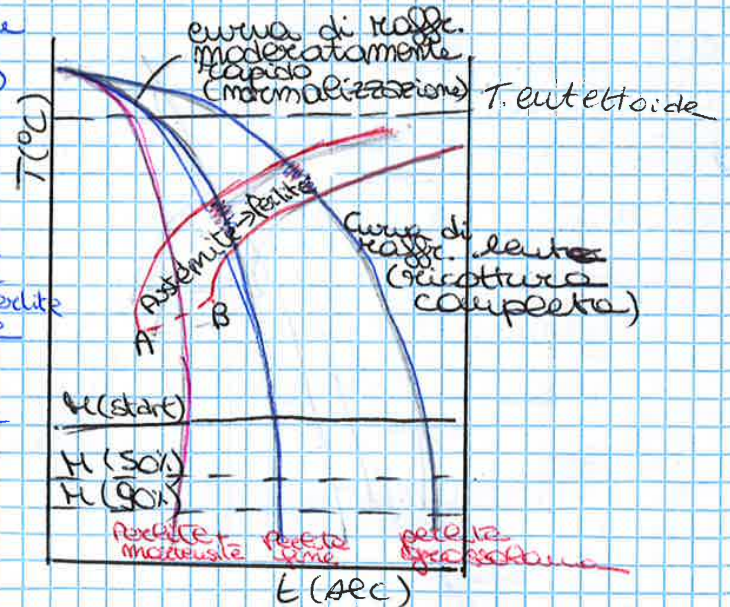 curva di raffr.
moderatamente
rapido
(normalizzazione)
T. eutettoide
T(°C)
Austenite→Perlite
Curva di
raffr. lenta
(ricottura
completa)
A
B
M(start)
M(50%)
M(90%)
Perlite+
martensite
perlite
fine
perlite
grossolana
t(sec)